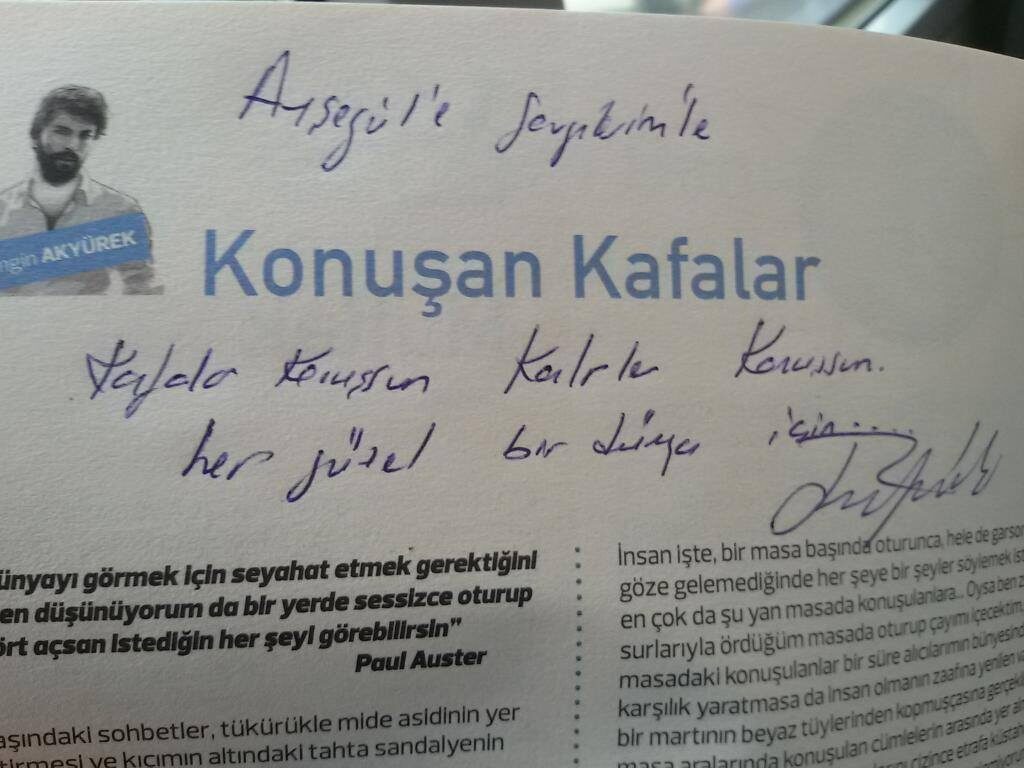 Ayşegül'e Sevgilerimle
ngin AKYÜREK
Konuşan Kafalar
Kafalar Konuşsun Kalpler Konuşsun.
her güzel bir dünya için....
ünyayı görmek için seyahat etmek gerektiğini
en düşünüyorum da bir yerde sessizce oturup
ört açsan istediğin her şeyi görebilirsin"
Paul Auster
aşındaki sohbetler, tükürükle mide asidinin yer
tirmesi ve kıçımın altındaki tahta sandalyenin
İnsan işte, bir masa başında oturunca, hele de garson
göze gelemediğinde her şeye bir şeyler söylemek ist
en çok da şu yan masada konuşulanlara... Oysa ben z
surlarıyla ördüğüm masada oturup çayımı içecektim,
masadaki konuşulanlar bir süre alıcılarımın bünyesind
karşılık yaratmasa da insan olmanın zaafına yenilen va
bir martının beyaz tüylerinden kopmuşçasına gerçekl
masa aralarında konuşulan cümlelerin arasında yer al
çizince etrafa